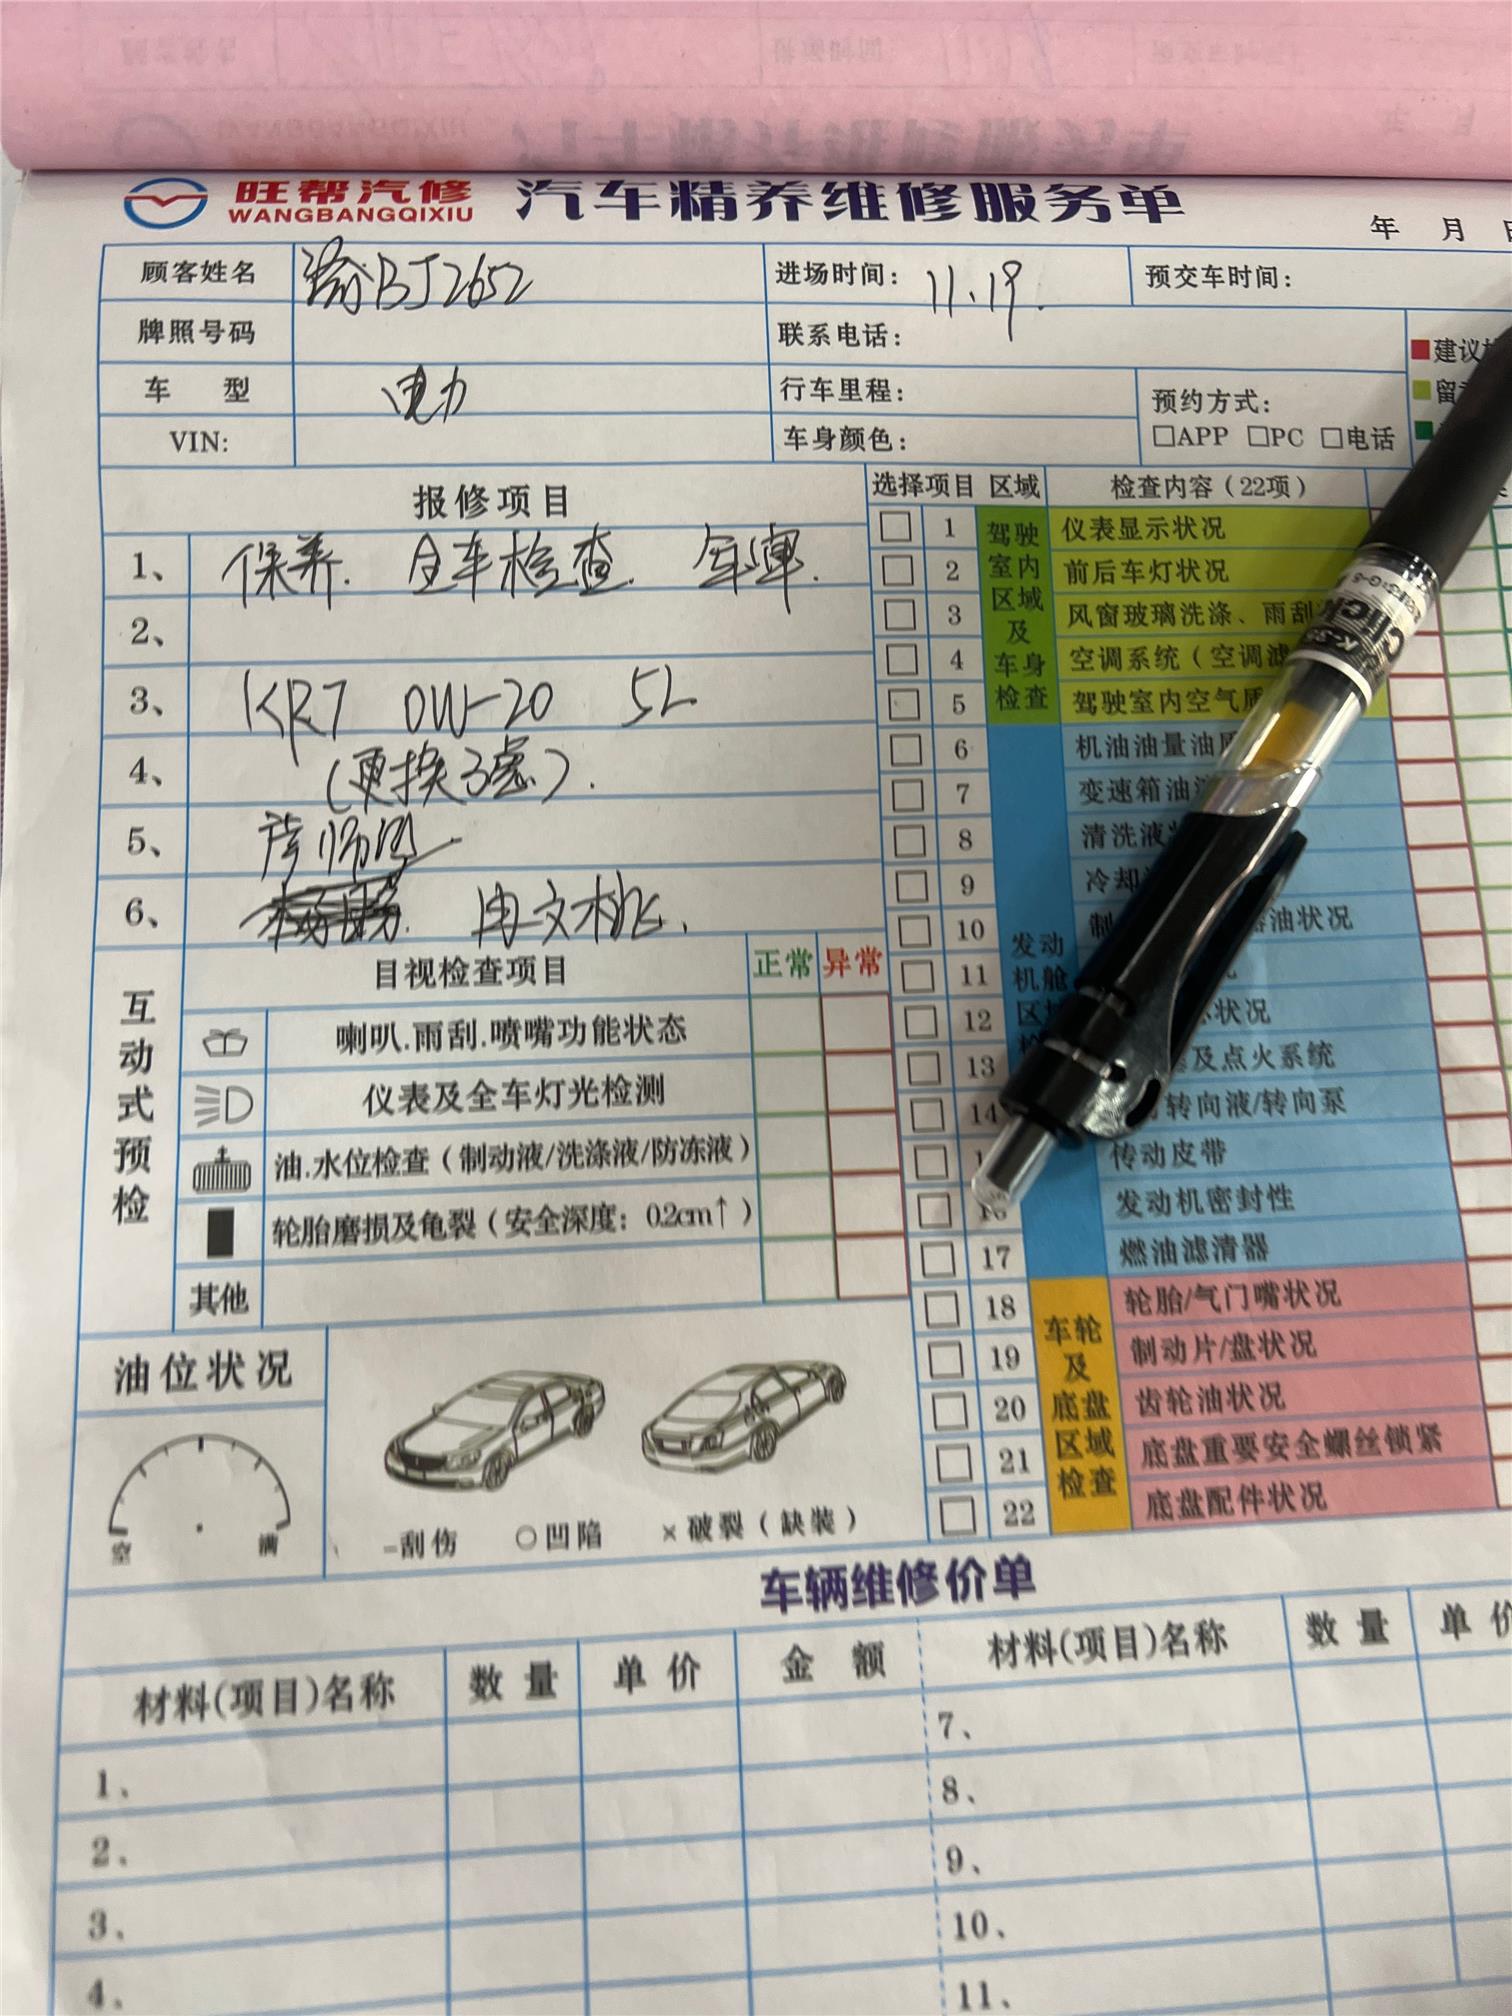 旺帮汽修
WANGBANGQIXIU
汽车精养维修服务单
年 月
顾客姓名 渝BJ2652 进场时间: 11.19. 预交车时间:
牌照号码 联系电话:
车 型 电力 行车里程: 预约方式:
VIN: 车身颜色: □APP □PC □电话
建议
留
报修项目
1、 保养. 全车检查.
2、
3、 KR7 0W-20 5L
4、 (更换3滤).
5、
6、
选择项目 区域 检查内容(22项)
驾驶室内区域及车身检查
1 仪表显示状况
2 前后车灯状况
3 风窗玻璃洗涤、雨刮
4 空调系统(空调滤
5 驾驶室内空气质
发动机舱区
6 机油油量油质
7 变速箱油
8 清洗液
9 冷却
10 制 油状况
11
12 状况
13 及点火系统
14 转向液/转向泵
传动皮带
16 发动机密封性
17 燃油滤清器
车轮及底盘区域检查
18 轮胎/气门嘴状况
19 制动片/盘状况
20 齿轮油状况
21 底盘重要安全螺丝锁紧
22 底盘配件状况
互动式预检
目视检查项目 正常 异常
喇叭.雨刮.喷嘴功能状态
仪表及全车灯光检测
油.水位检查(制动液/洗涤液/防冻液)
轮胎磨损及龟裂(安全深度: 0.2cm↑)
其他
油位状况
空 满
-刮伤 ○凹陷 ×破裂(缺装)
车辆维修价单
材料(项目)名称 数量 单价 金 额 材料(项目)名称 数量 单价
1、 7、
2、 8、
3、 9、
4、 10、
11、